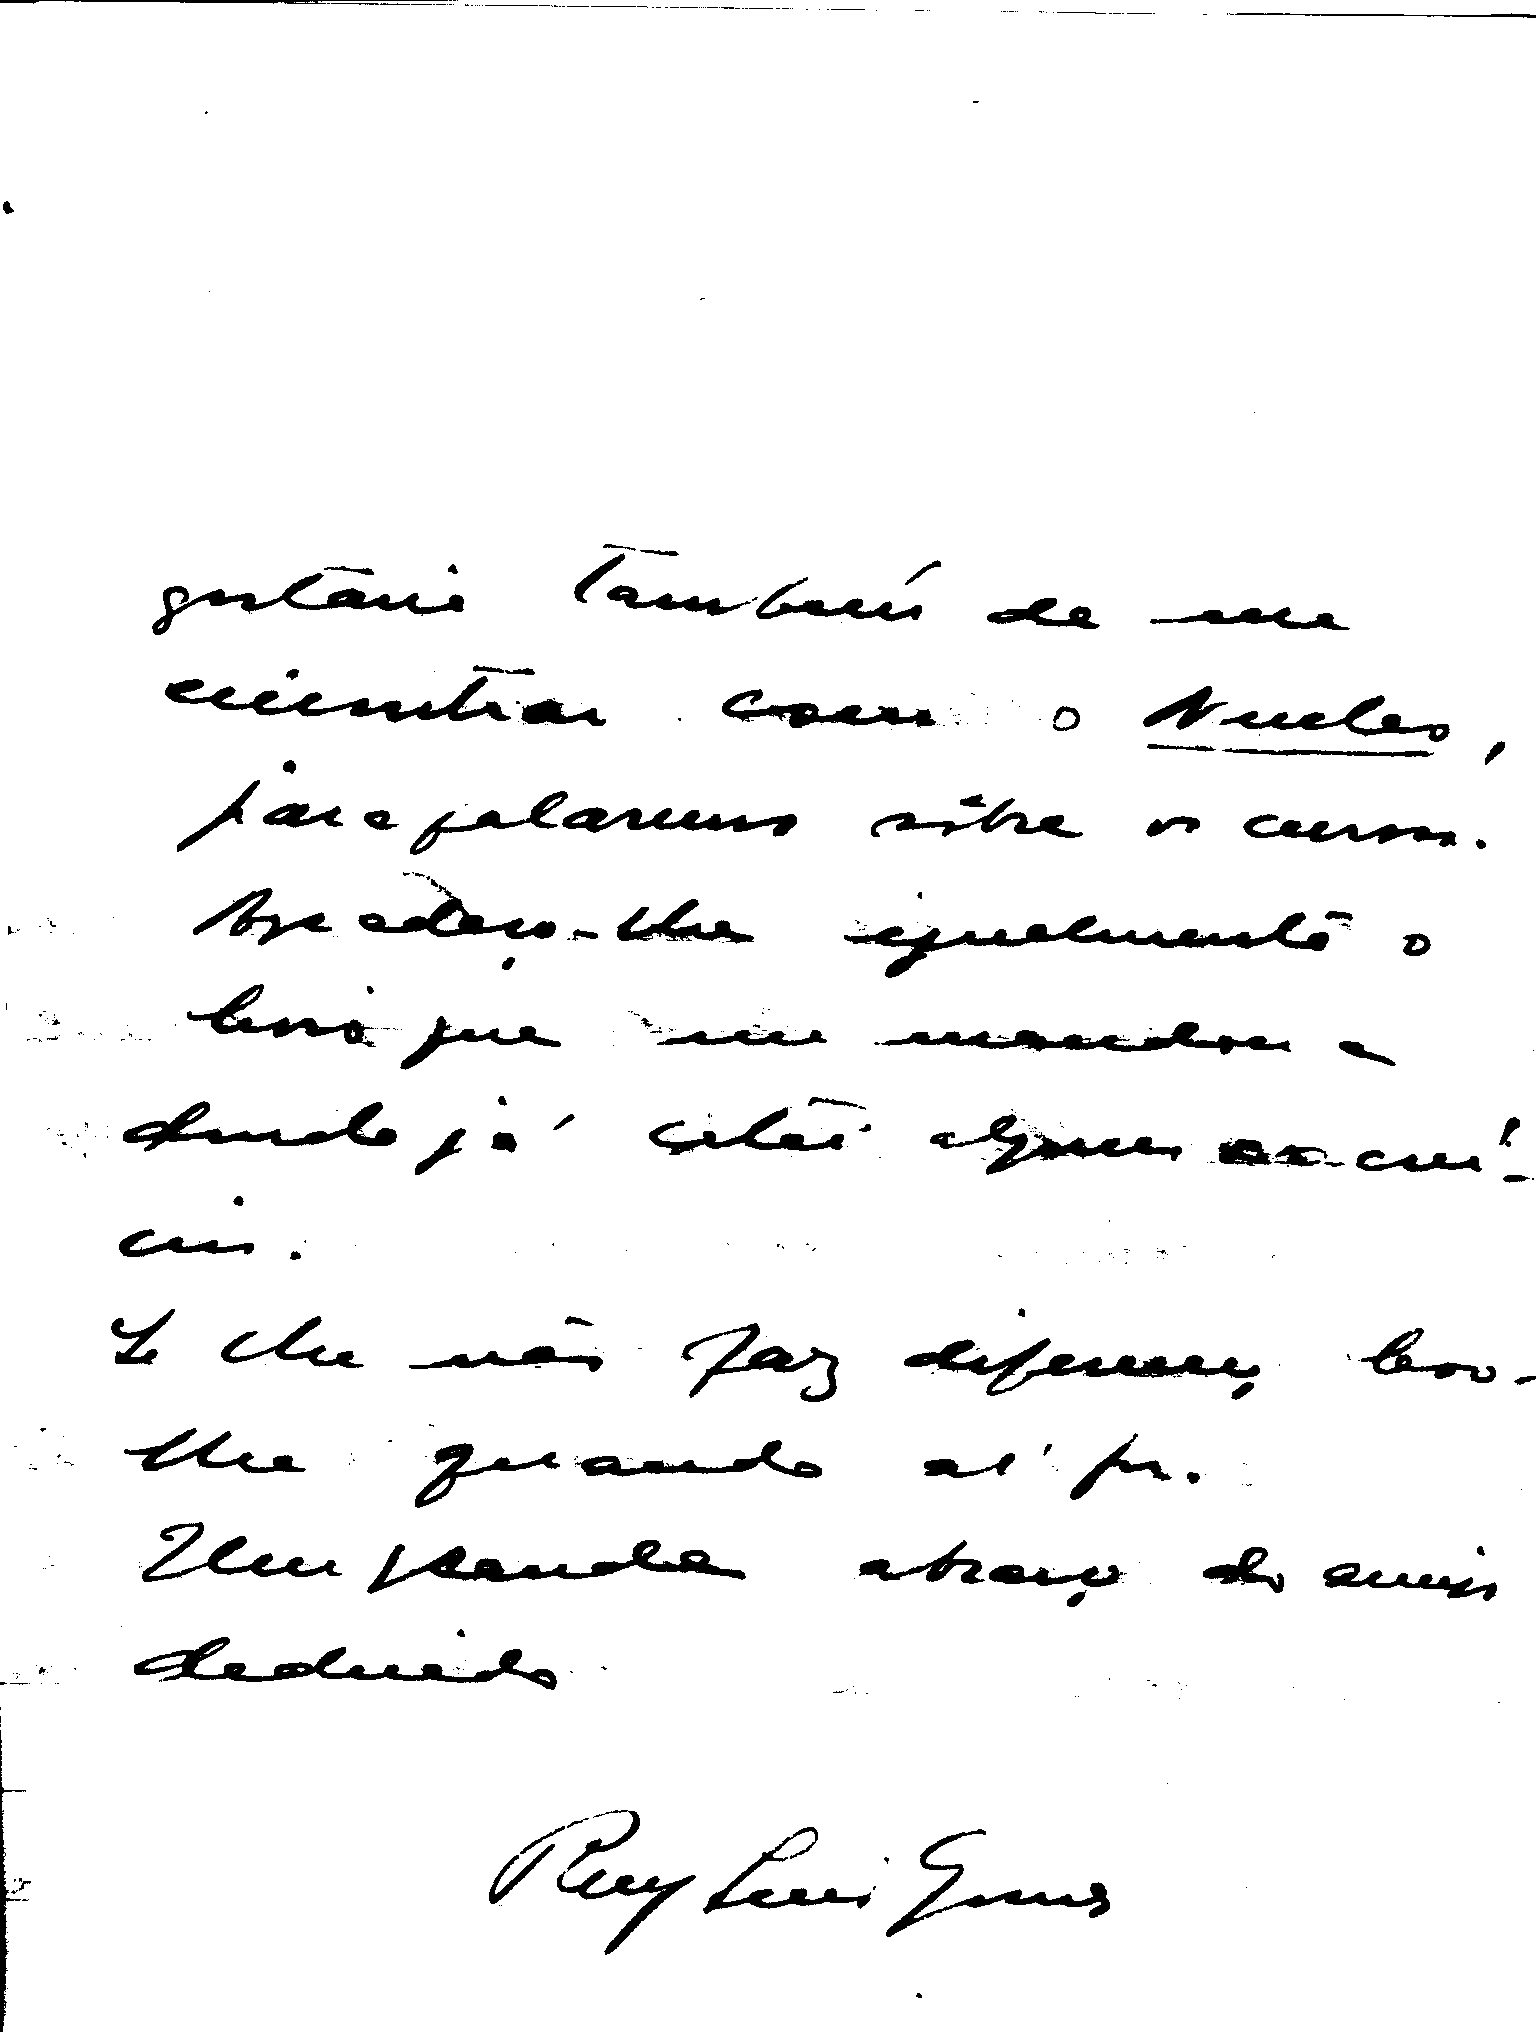 gostaria também de me
encontrar com o Nucleo,
para falarmos sôbre os cursos.
Agradeço-lhe igualmente o
livro que me mandou e
donde já extraí alguns exercí-
cios.
Se lhe não faz diferença, levo-
lhe quando aí for.
Um grande abraço do amigo
dedicado
Ruy Luís Gomes